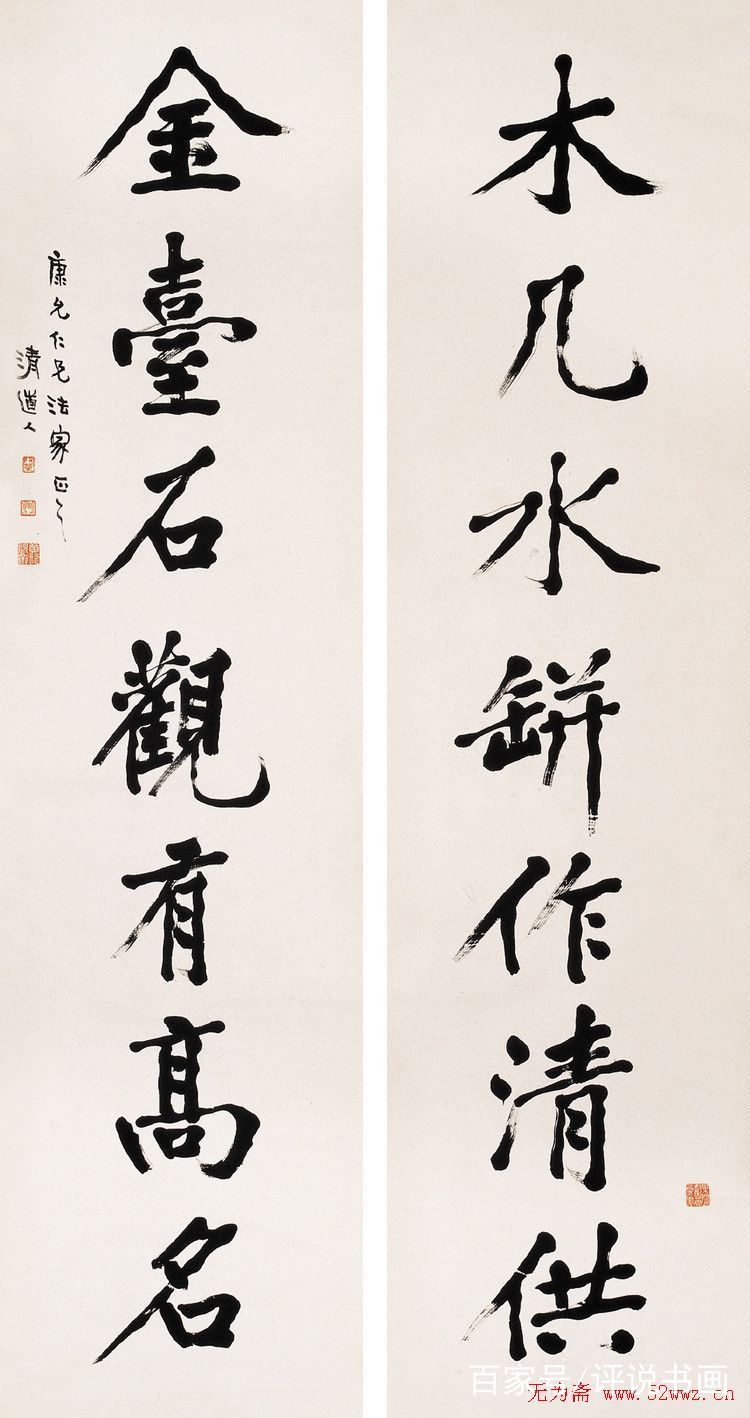 木几水缾作清供
金臺石觀有高名
康允仁兄法家正之
清道人
百家号/评说书画
无为斋 www.52wwz.cn